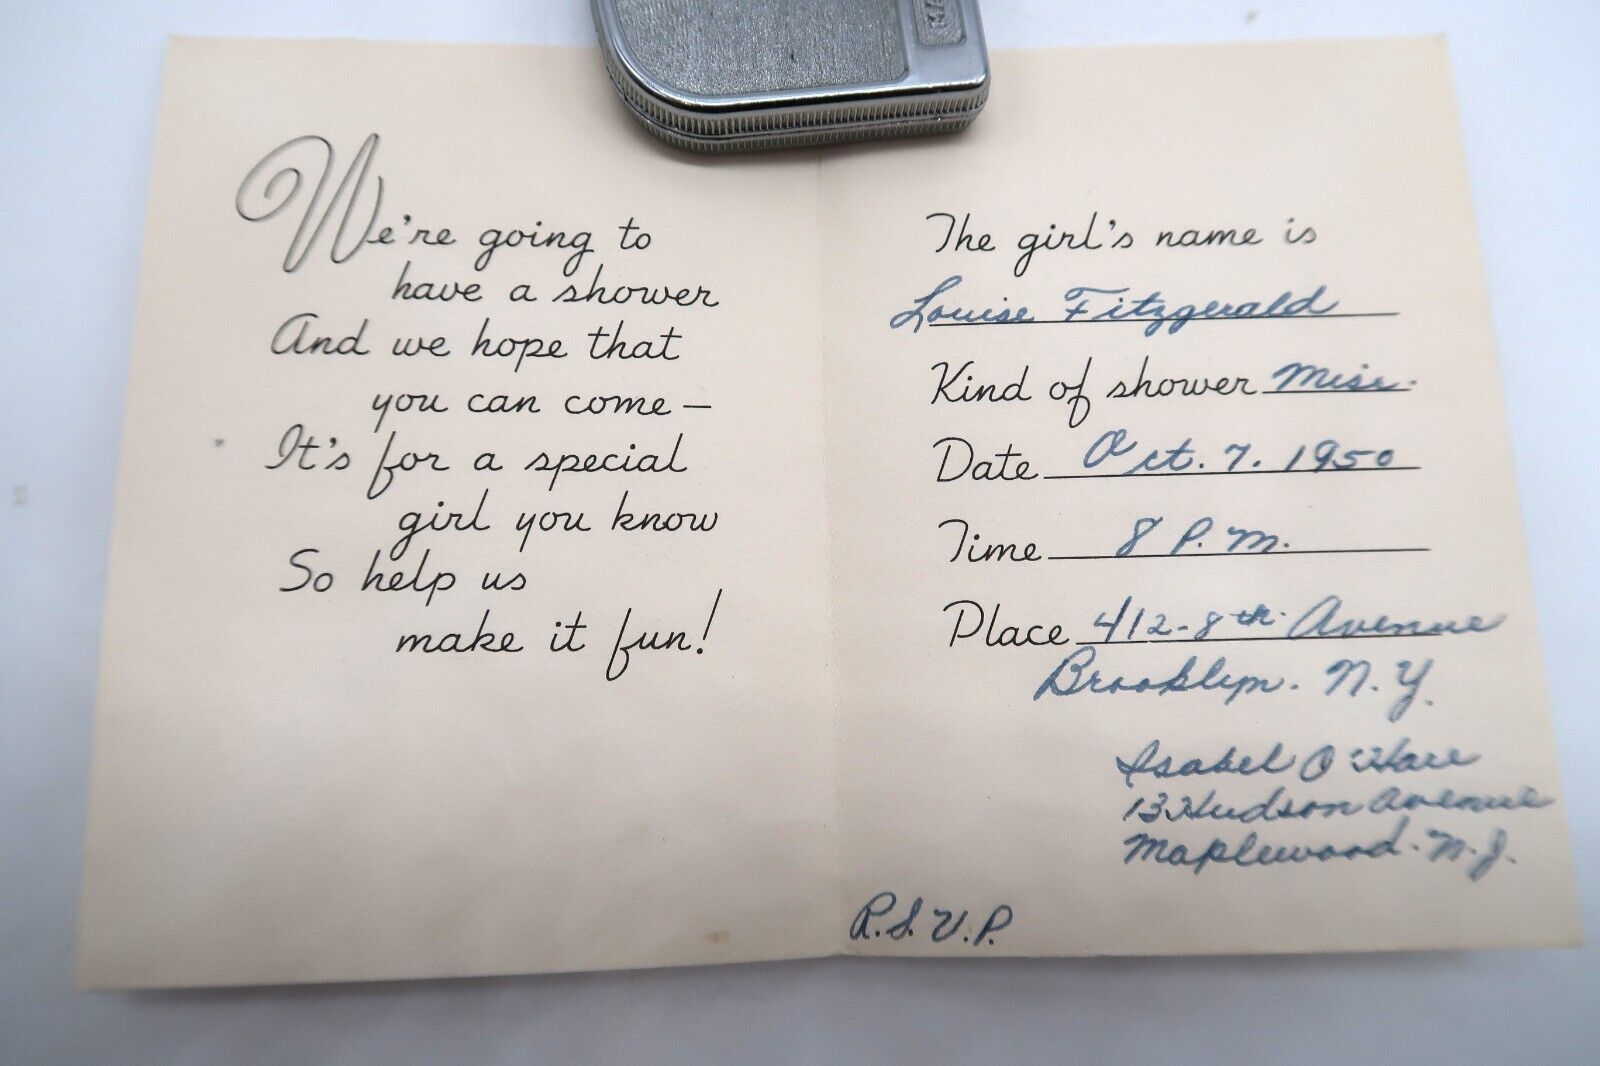 We're going to
have a shower
And we hope that
you can come —
It's for a special
girl you know
So help us
make it fun!
The girl's name is
Louise Fitzgerald
Kind of shower Misc.
Date Oct. 7. 1950
Time 8 P.M.
Place 412-8th. Avenue
Brooklyn. N.Y.
Isabel O'Hare
13 Hudson Avenue
Maplewood. N.J.
R.S.V.P.